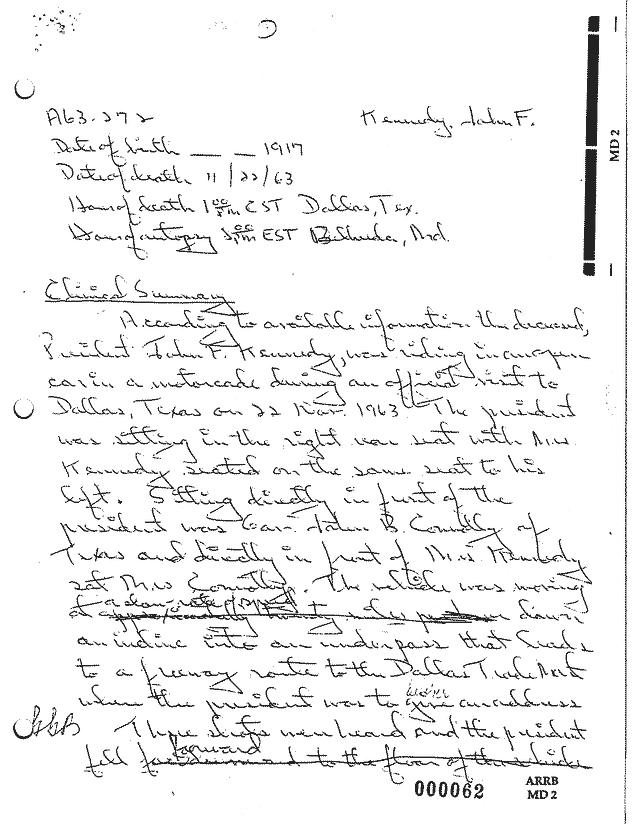 A63-272 Kennedy, John F.
Date of birth __ __ 1917
Date of death 11/22/63
Hour of death 1 00 pm CST Dallas, Tex.
Hour of autopsy 8 00 pm EST Bethesda, Md.
Clinical Summary
According to available information the deceased,
President John F. Kennedy, was riding in an open
car in a motorcade during an official visit to
Dallas, Texas on 22 Nov. 1963. The president
was sitting in the right rear seat with Mrs.
Kennedy seated on the same seat to his
left. Sitting directly in front of the
president was Gov. John B. Connolly of
Texas and directly in front of Mrs. Kennedy
sat Mrs Connolly. The vehicle was moving
a slow rate of speed
at twenty miles down
an incline into an underpass that leads
to a freeway route to the Dallas Trade Mart
deliver
when the president was to give an address
Three shots were heard and the president
forward
fell to the floor of the vehicle
MD 2
000062
ARRB
MD 2